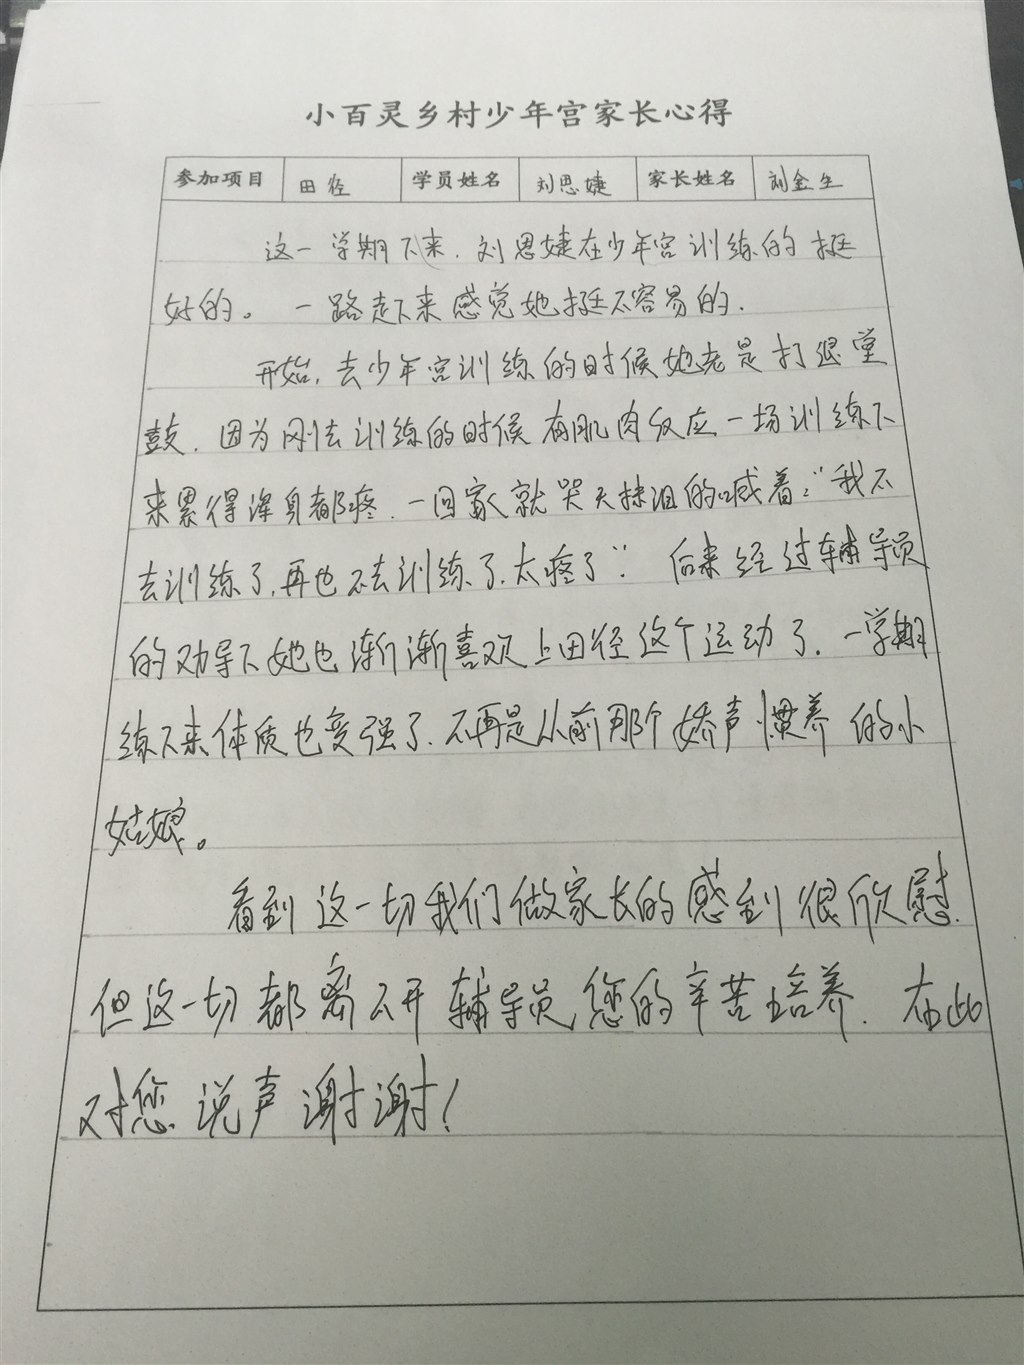 小百灵乡村少年宫家长心得
参加项目 田径 学员姓名 刘思婕 家长姓名 刘金生
这一学期下来.刘思婕在少年宫训练的挺
好的。一路走下来感觉她挺不容易的.
开始,去少年宫训练的时候她老是打退堂
鼓.因为刚去训练的时候有肌肉反应一场训练下
来累得浑身都疼.一回家就哭天抹泪的喊着:“我不
去训练了,再也不去训练了.太疼了”.后来经过辅导员
的劝导下她也渐渐喜欢上田径这个运动了.一学期
练下来体质也变强了.不再是从前那个娇声惯养的小
姑娘。
看到这一切我们做家长的感到很欣慰.
但这一切都离不开辅导员您的辛苦培养.在此
对您说声谢谢!